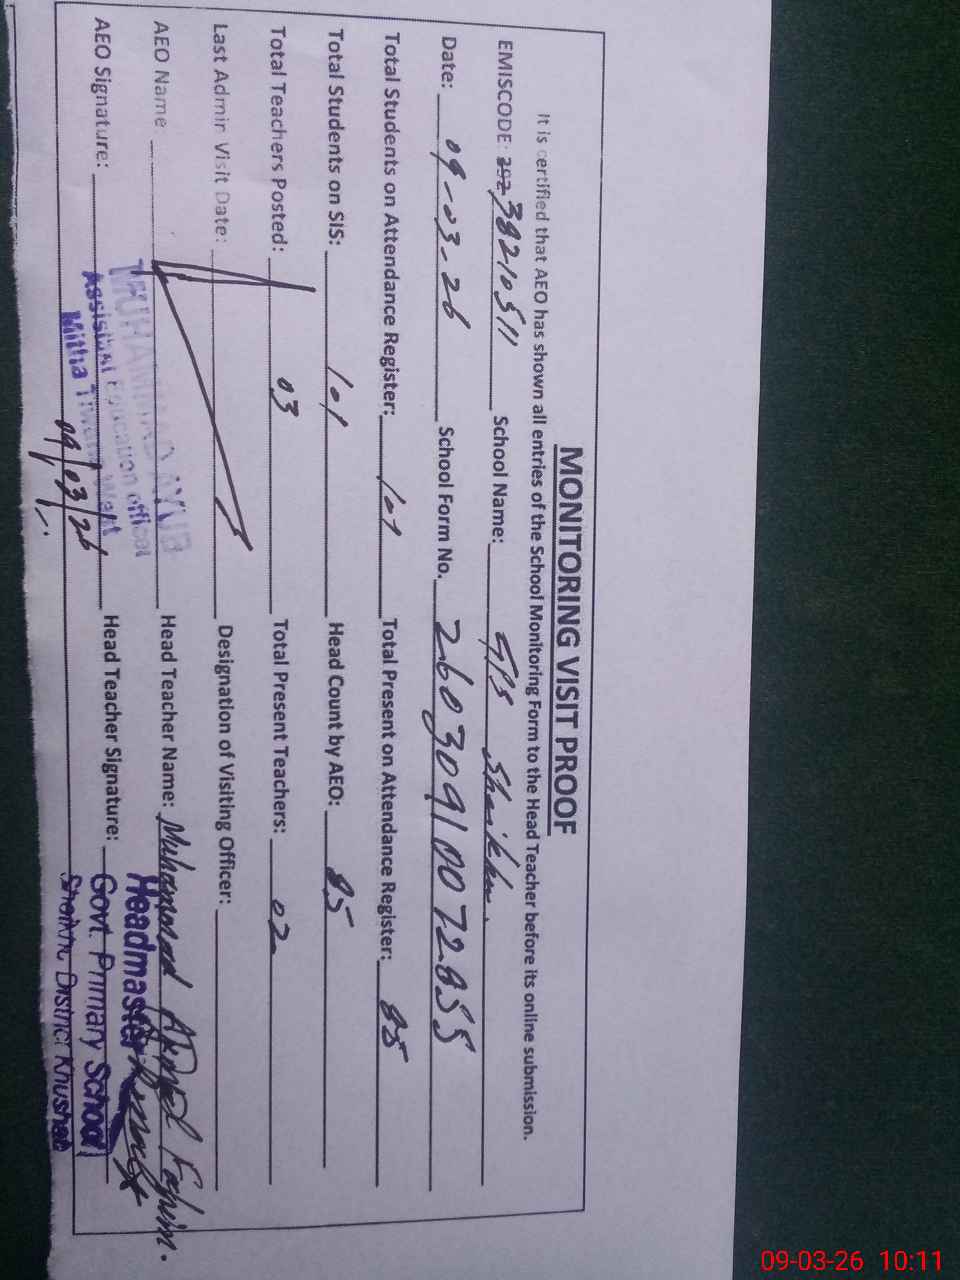 MONITORING VISIT PROOF
It is certified that AEO has shown all entries of the School Monitoring Form to the Head Teacher before its online submission.
EMISCODE: 38210511 School Name: GPS Sheikhu.
Date: 09-03-26 School Form No. 26030910072855
Total Students on Attendance Register: 101 Total Present on Attendance Register: 85
Total Students on SIS: 101 Head Count by AEO: 85
Total Teachers Posted: 03 Total Present Teachers: 02
Last Admin Visit Date: Designation of Visiting Officer:
AEO Name Head Teacher Name: Muhammad Fahim.
MUHAMMAD AYUB
Assistant Education Officer
Mitha Tiwana West
Headmaster
AEO Signature: Head Teacher Signature:
Govt. Primary School
Sheikhu District Khushab
09/03/26
09-03-26 10:11